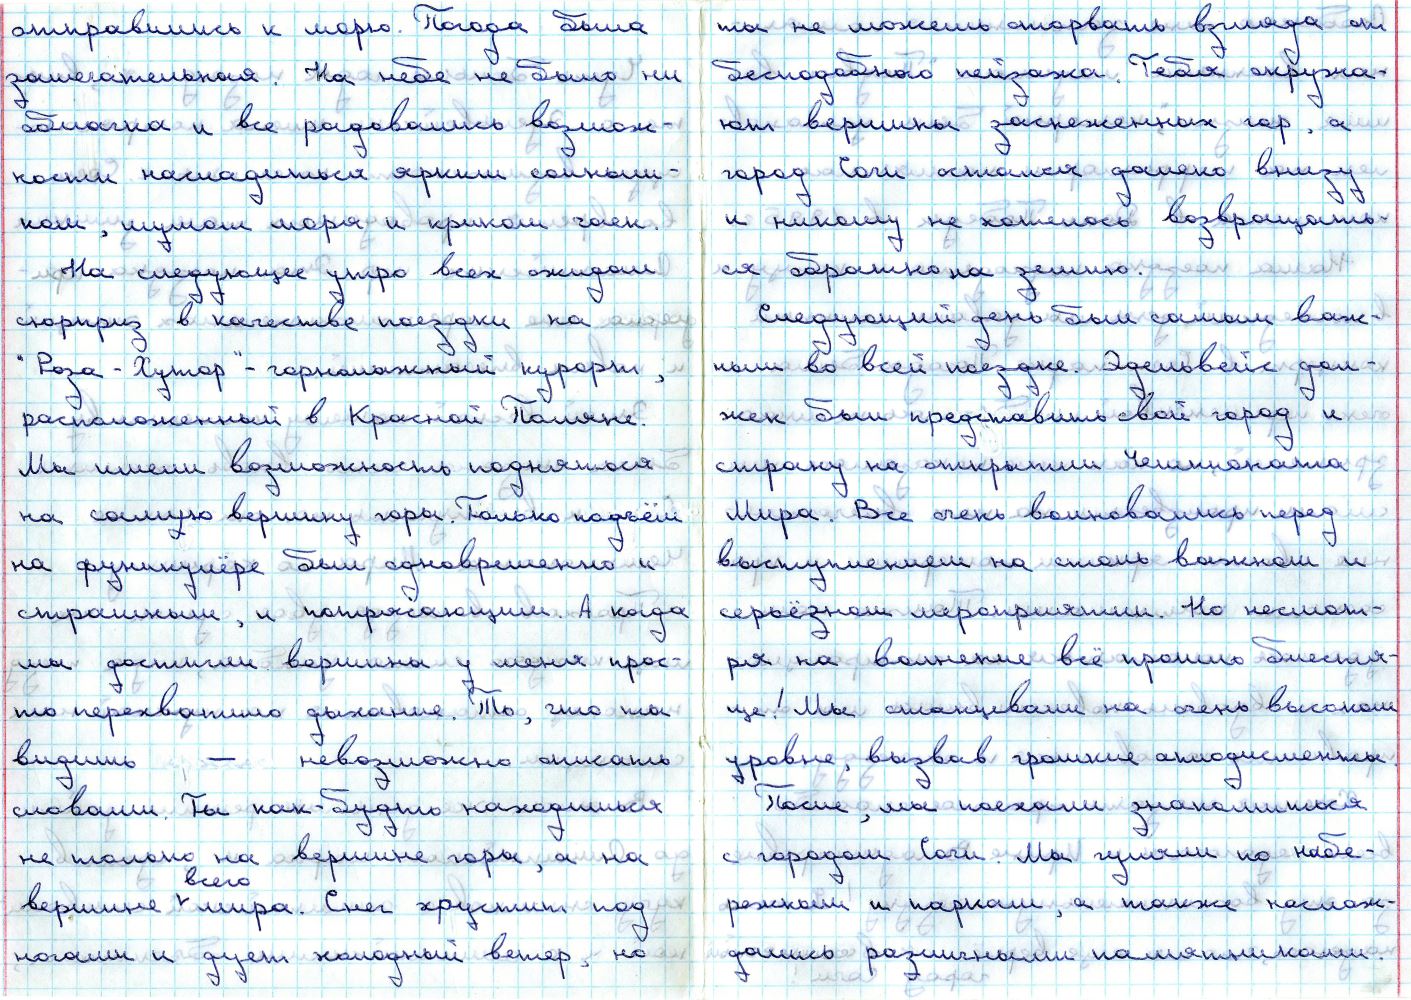 отправились к морю. Погода была
замечательная. На небе не было ни
облачка и все радовались возмож-
ности насладиться ярким солныш-
ком, шумом моря и криком чаек.
На следующее утро всех ожидал
сюрприз в качестве поездки на
"Роза-Хутор" - горнолыжный курорт,
расположенный в Красной Поляне.
Мы имели возможность подняться
на самую вершину горы. Только подъём
на фуникулёре был одновременно и
страшным, и потрясающим. А когда
мы достигли вершины у меня прос-
то перехватило дыхание. То, что ты
видишь — невозможно описать
словами. Ты как-будто находишься
не только на вершине горы, а на
вершине всего мира. Снег хрустит под
ногами и дует холодный ветер, но
ты не можешь оторвать взгляда от
бесподобного пейзажа. Тебя окружа-
ют вершины заснеженных гор, а
город Сочи остался далеко внизу
и никому не хотелось возвращать-
ся обратно на землю.
Следующий день был самым важ-
ным во всей поездке. Эдельвейс дол-
жен был представить свой город и
страну на открытии Чемпионата
Мира. Все очень волновались перед
выступлением на столь важном и
серьёзном мероприятии. Но несмот-
ря на волнение всё прошло блестя-
ще! Мы станцевали на очень высоком
уровне, вызвав громкие аплодисменты.
После, мы поехали знакомиться
с городом Сочи. Мы гуляли по набе-
режным и паркам, а также наслаж-
дались различными памятниками.